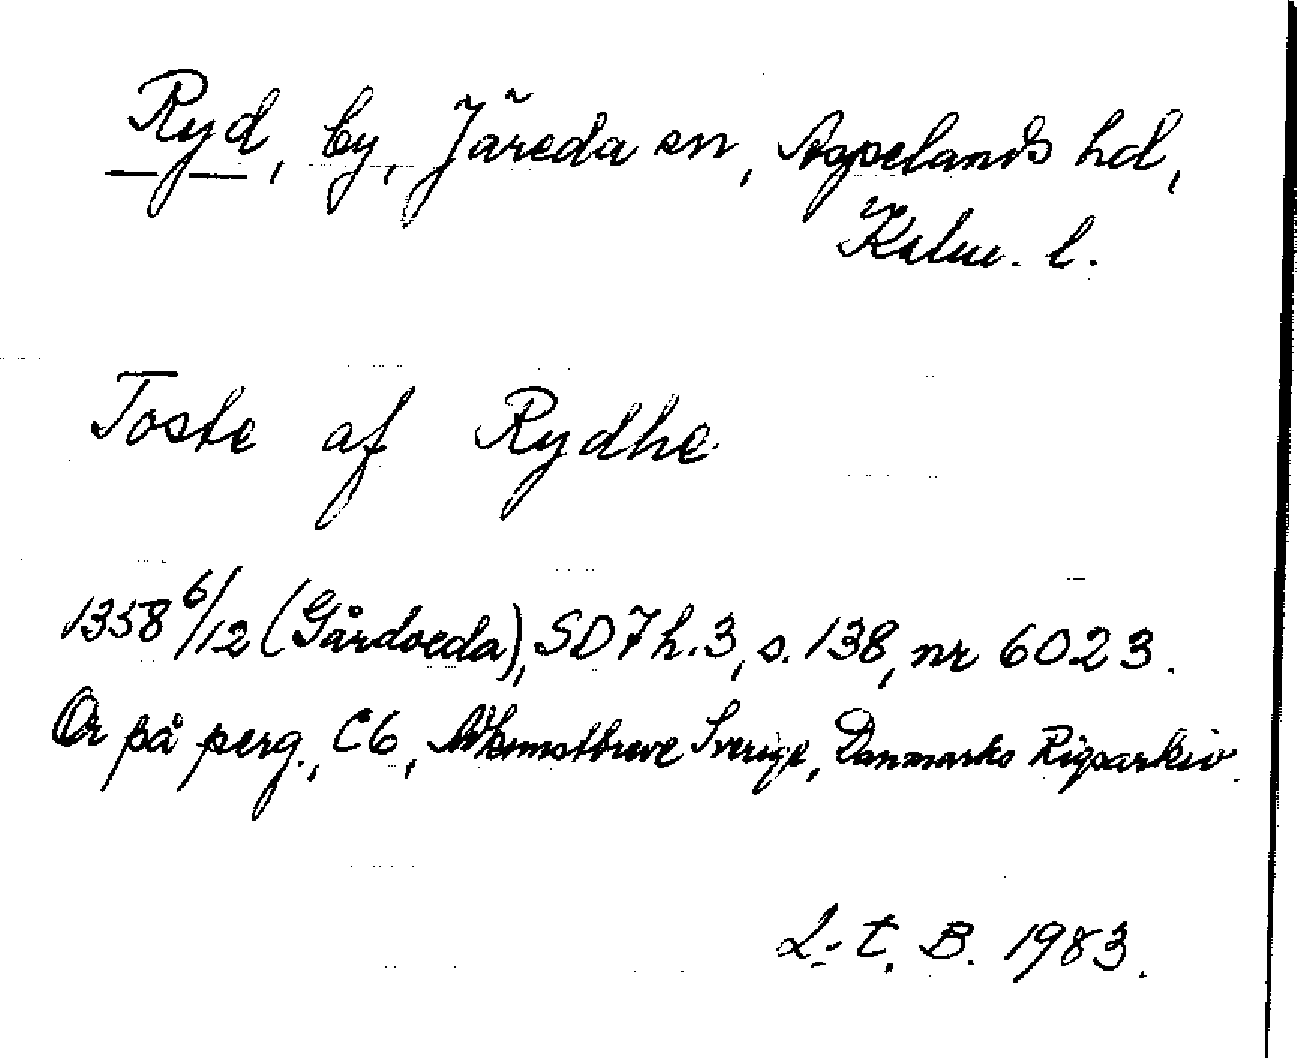 Ryd, by, Järeda sn, Aspelands hd,
Kalm. l.
Toste af Rydhe
1358 6/12 (Gårdveda), SD 7 h. 3, s. 138, nr 6023.
Or på perg., C6, Adkomstbreve Sverige, Danmarks Rigsarkiv.
L. t. B. 1983.